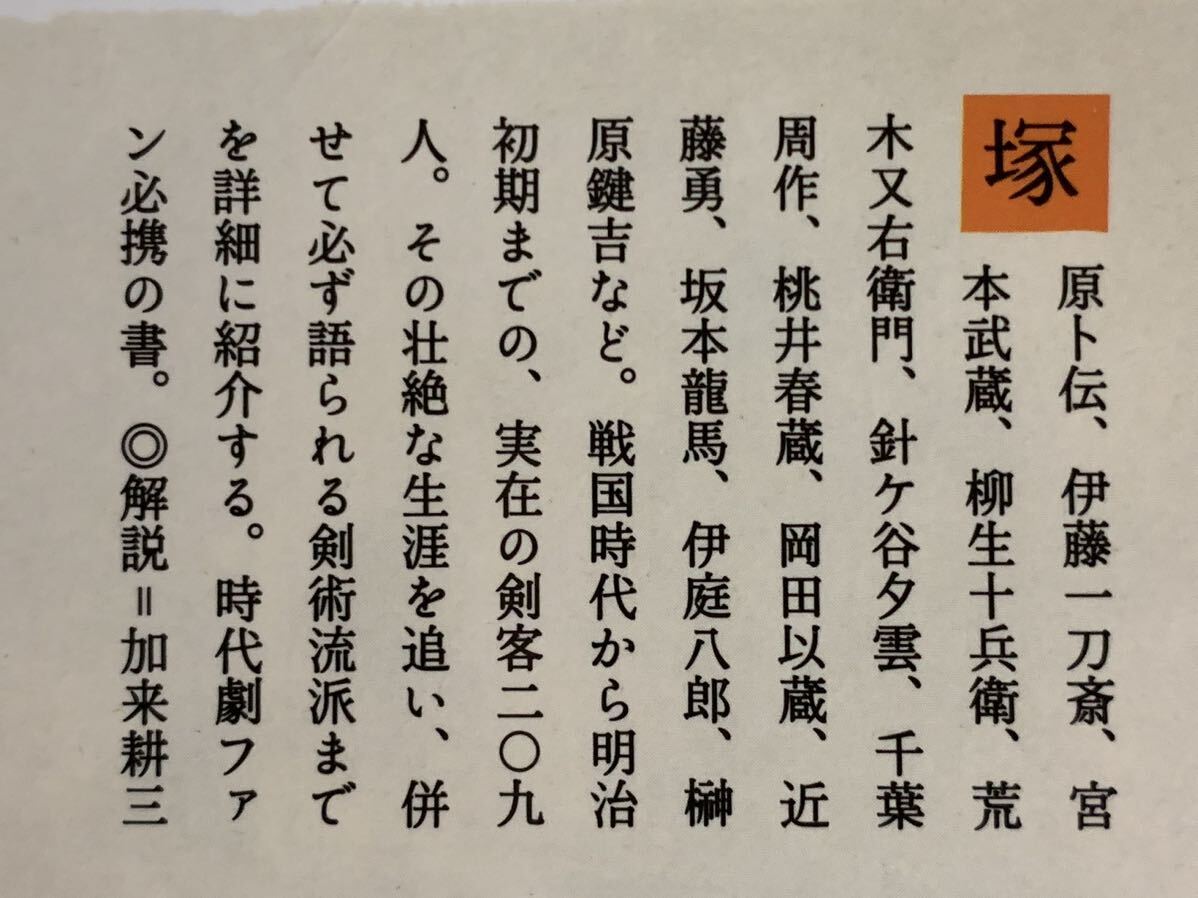 塚原卜伝、伊藤一刀斎、宮
本武蔵、柳生十兵衛、荒
木又右衛門、針ケ谷夕雲、千葉
周作、桃井春蔵、岡田以蔵、近
藤勇、坂本龍馬、伊庭八郎、榊
原鍵吉など。戦国時代から明治
初期までの、実在の剣客二〇九
人。その壮絶な生涯を追い、併
せて必ず語られる剣術流派まで
を詳細に紹介する。時代劇ファ
ン必携の書。◎解説＝加来耕三